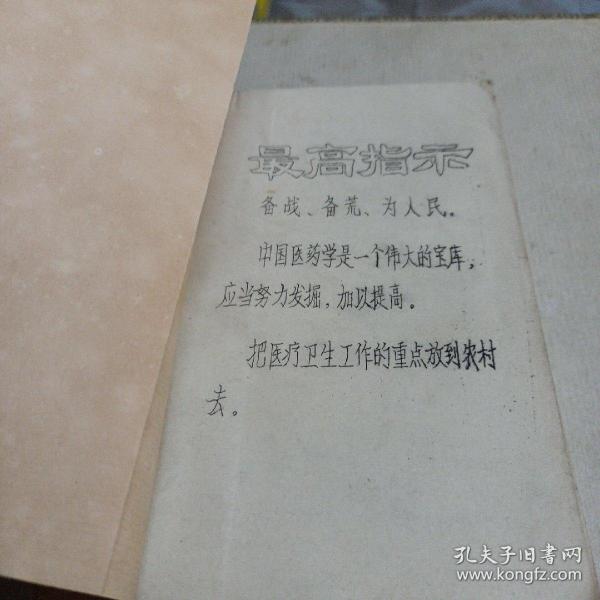 最高指示
备战、备荒、为人民。
中国医药学是一个伟大的宝库，
应当努力发掘，加以提高。
把医疗卫生工作的重点放到农村
去。
孔夫子旧书网
www.kongfz.com